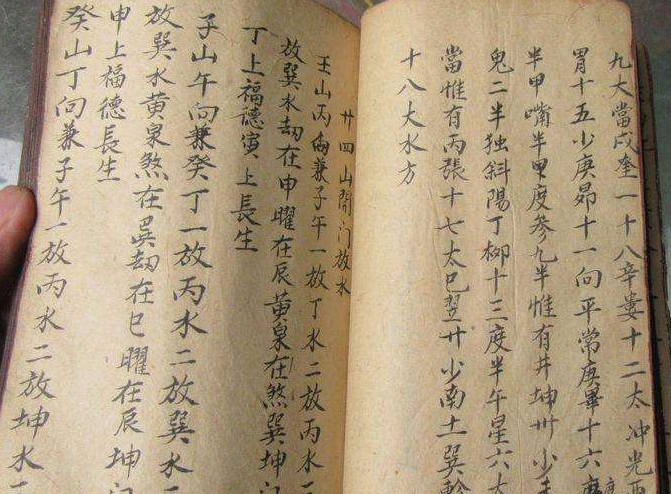 九大當戍奎一十八辛婁十二太冲光西
胃十五少庚昴十一向平常庚畢十六度
半甲嘴半甲度参九半惟有井坤卅少
鬼二半独斜陽丁柳十三度半午星六太
當惟有丙張十七太巳翌廿少南土巽軫
十八大水方
廿四山開门放水
壬山丙向兼子午一放丁水二放丙水
放巽水劫在申曜在辰黄泉在煞巽坤门
丁上福德寅上長生
子山午向兼癸丁一放丙水二放巽水
放巽水黄泉煞在巽劫在巳曜在辰坤门
申上福德長生
癸山丁向兼子午一放丙水二放坤水